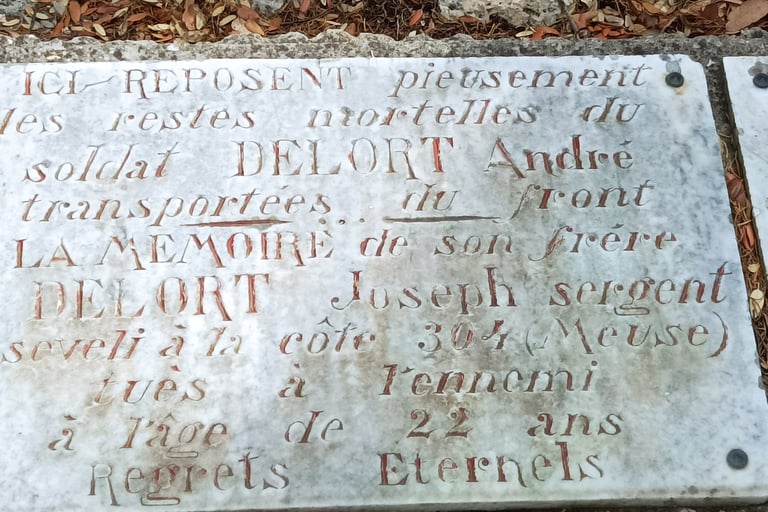 ICI REPOSENT pieusement
les restes mortelles du
soldat DELORT André
transportées du front
LA MÉMOIRE de son frére
DELORT Joseph sergent
seveli à la côte 304 (Meuse)
tuès à l'ennemi
à l'âge de 22 ans
Regrets Eternels